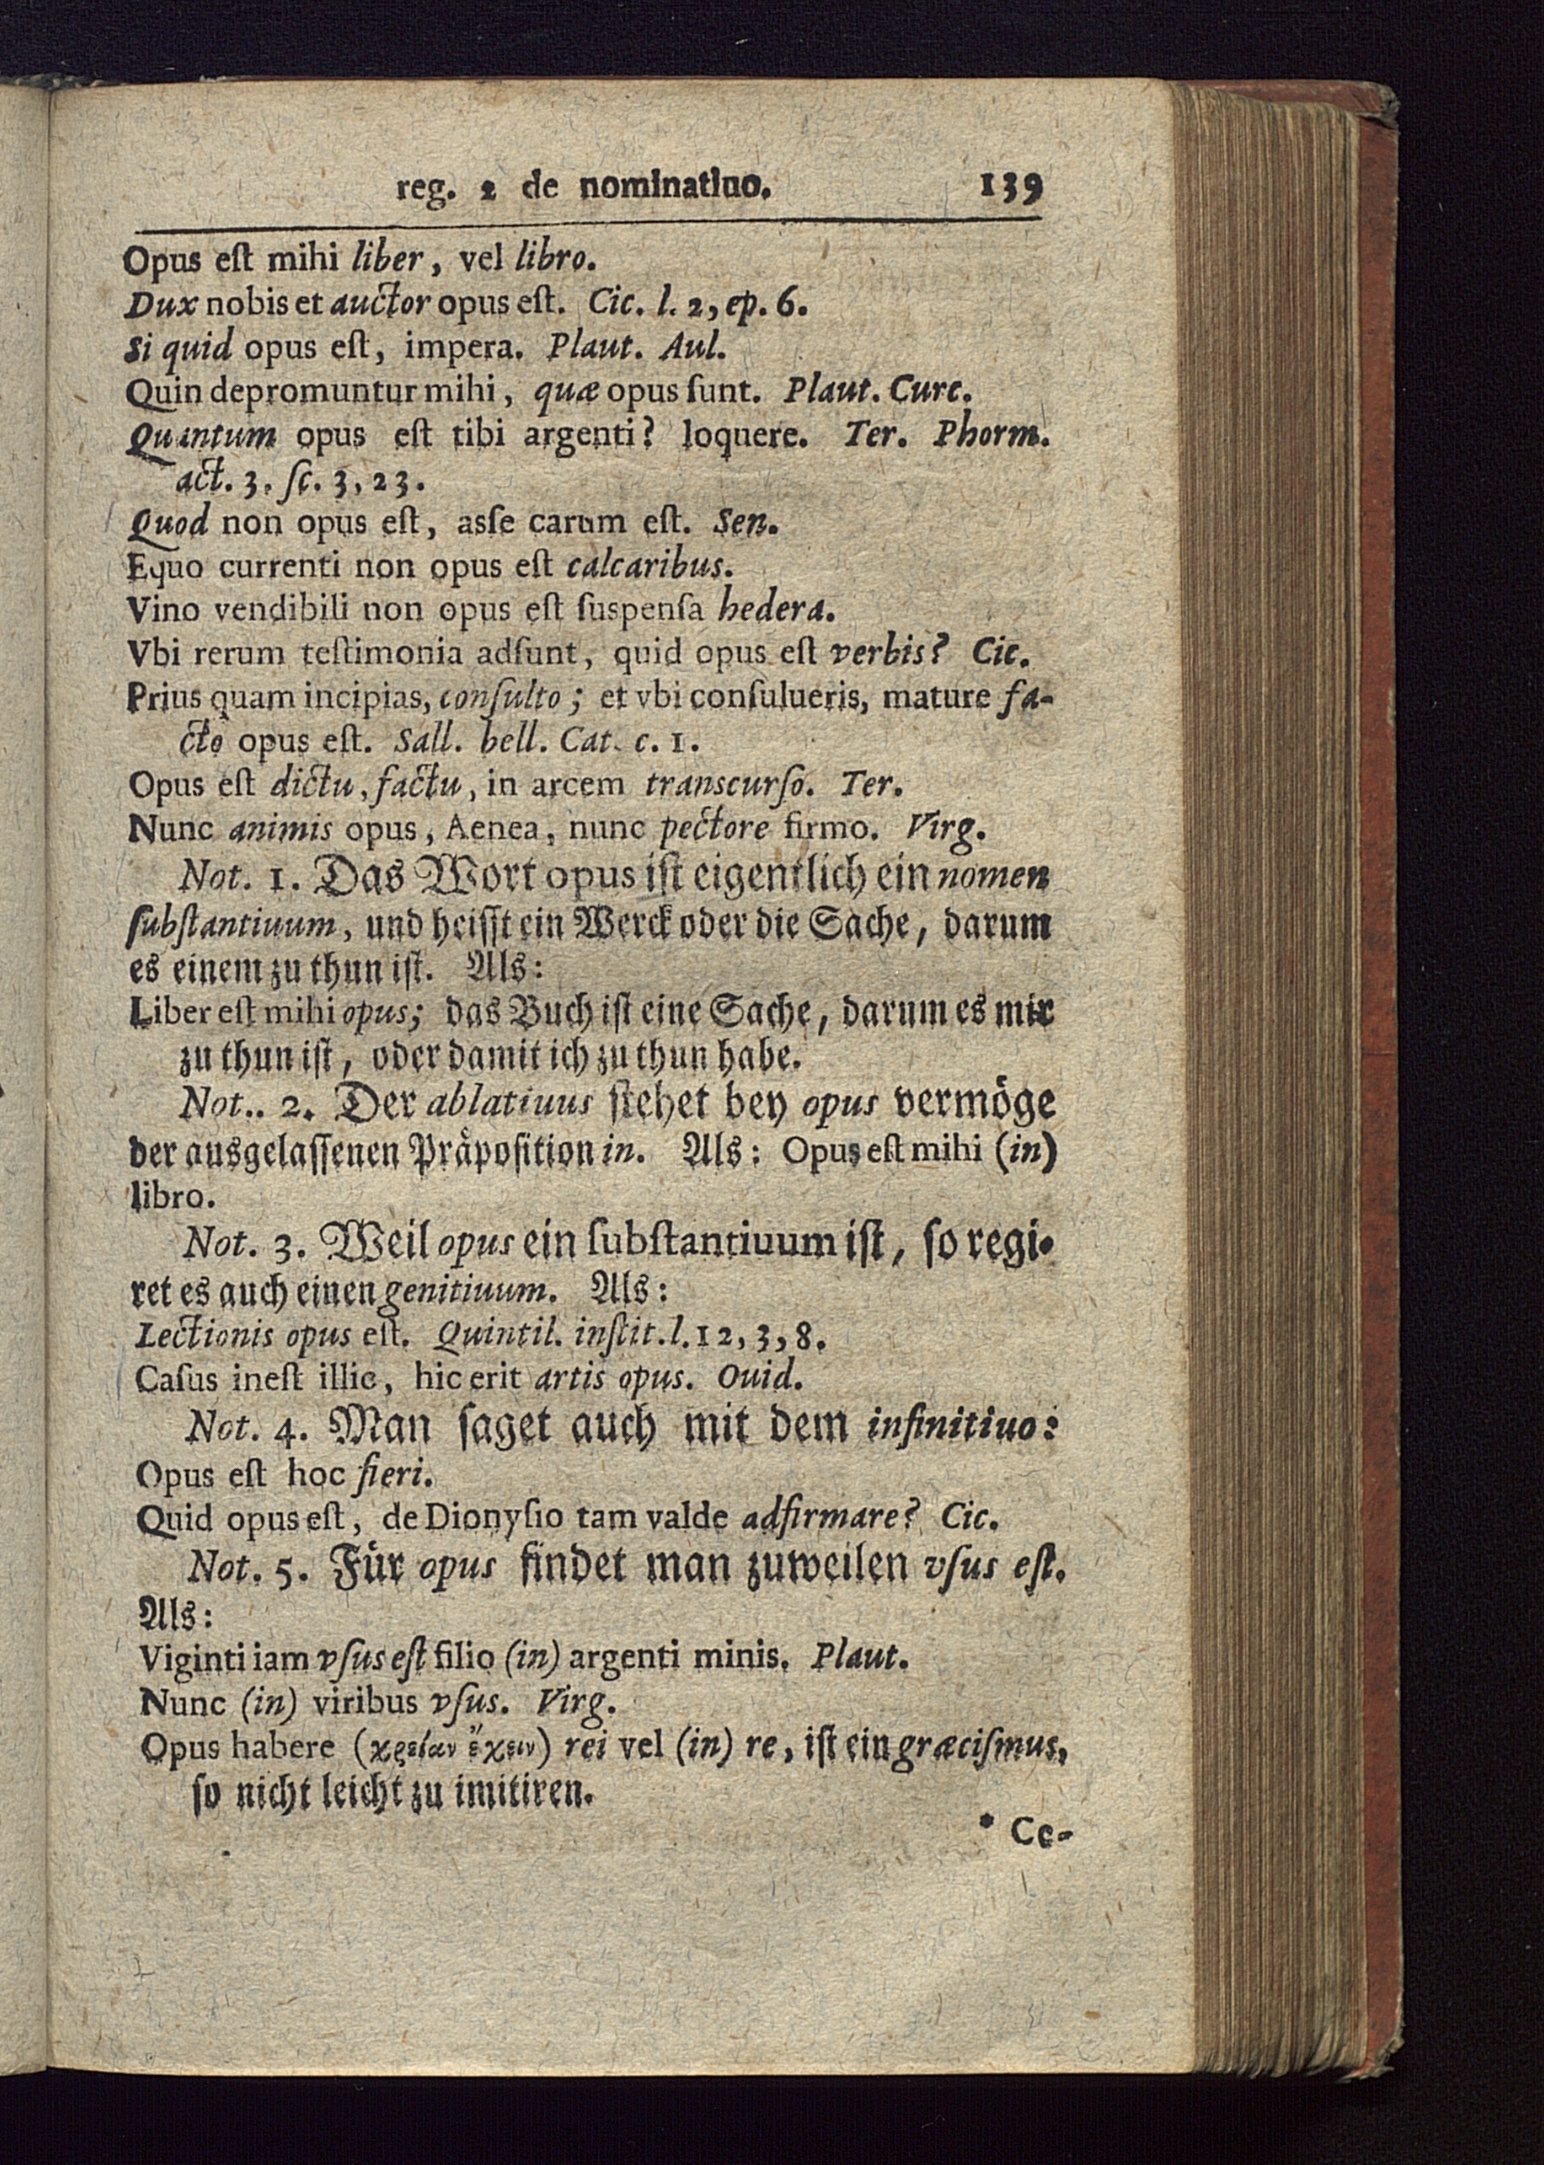 reg. 2 de nominatiuo. 139
Opus eſt mihi liber, vel libro.
Dux nobis et auctor opus eſt. Cic. l. 2, ep. 6.
Si quid opus eſt, impera. Plaut. Aul.
Quin depromuntur mihi, quæ opus ſunt. Plaut. Curc.
Quantum opus eſt tibi argenti? loquere. Ter. Phorm.
act. 3. ſc. 3, 23.
Quod non opus eſt, aſſe carum eſt. Sen.
Equo currenti non opus eſt calcaribus.
Vino vendibili non opus eſt ſuspenſa hedera.
Vbi rerum teſtimonia adſunt, quid opus eſt verbis? Cic.
Prius quam incipias, conſulto; et vbi conſulueris, mature fa-
cto opus eſt. Sall. bell. Cat. c. 1.
Opus eſt dictu, factu, in arcem transcurſo. Ter.
Nunc animis opus, Aenea, nunc pectore firmo. Virg.
Not. 1. Das Wort opus iſt eigentlich ein nomen
ſubſtantiuum, und heiſſt ein Werck oder die Sache, darum
es einem zu thun iſt. Als:
Liber eſt mihi opus; das Buch iſt eine Sache, darum es mir
zu thun iſt, oder damit ich zu thun habe.
Not.. 2. Der ablatiuus ſtehet bey opus vermöge
der ausgelaſſenen Präpoſition in. Als: Opus eſt mihi (in)
libro.
Not. 3. Weil opus ein ſubſtantiuum iſt, ſo regi-
ret es auch einen genitiuum. Als:
Lectionis opus eſt. Quintil. inſtit. l. 12, 3, 8.
Caſus ineſt illic, hic erit artis opus. Ouid.
Not. 4. Man ſaget auch mit dem infinitiuo:
Opus eſt hoc fieri.
Quid opus eſt, de Dionyſio tam valde adfirmare? Cic.
Not. 5. Für opus findet man zuweilen vſus eſt.
Als:
Viginti iam vſus eſt filio (in) argenti minis. Plaut.
Nunc (in) viribus vſus. Virg.
Opus habere (χρείαν ἔχειν) rei vel (in) re, iſt ein græciſmus,
ſo nicht leicht zu imitiren.
* Ce-